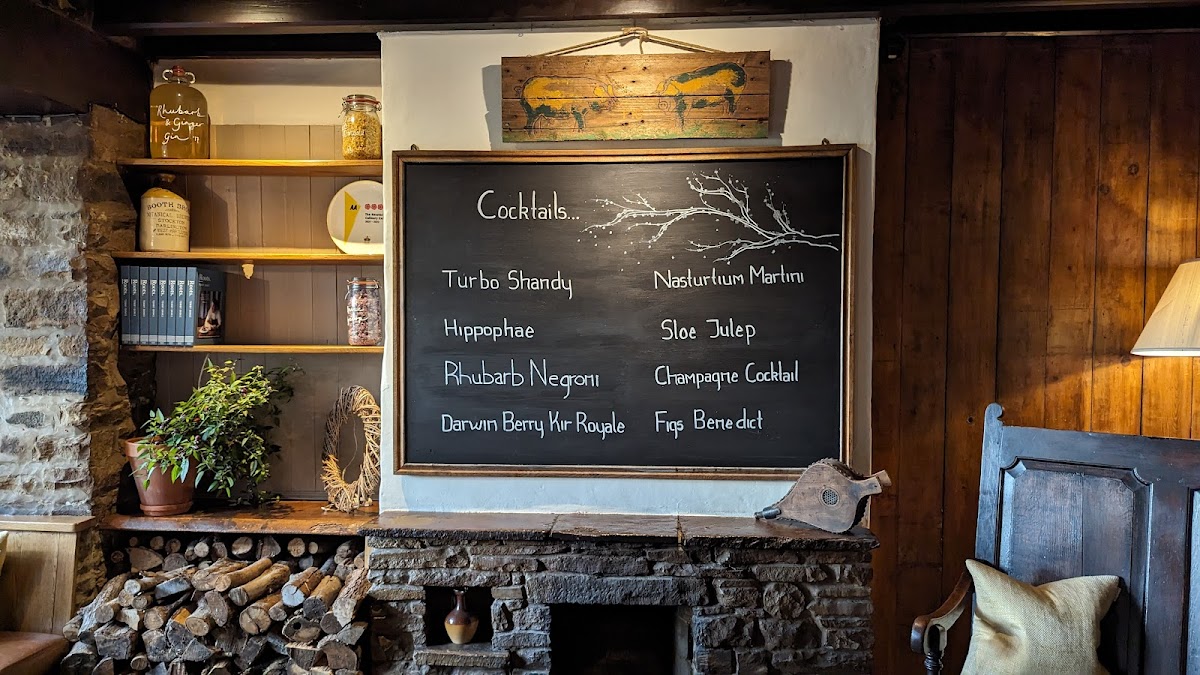 Rhubarb
& Ginger
Gin
Cocktails...
Turbo Shandy
Nasturtium Martini
Hippophae
Sloe Julep
Rhubarb Negroni
Champagne Cocktail
Darwin Berry Kir Royale
Figs Benedict
BOOTH
BOTANICAL
AA